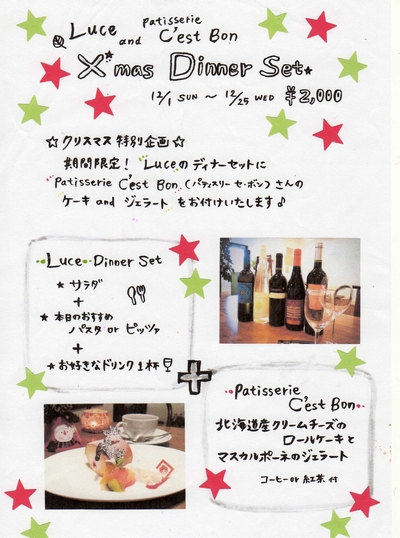 Luce and Patisserie C'est Bon
X'mas Dinner Set
12/1 SUN 〜 12/25 WED ¥2,000
☆クリスマス特別企画☆
期間限定! Luceのディナーセットに
Patisserie C'est Bon (パティスリー セ・ボン) さんの
ケーキ and ジェラート をお付けいたします♪
Luce Dinner Set
★ サラダ
+
★ 本日のおすすめ
パスタ or ピッツァ
+
★ お好きなドリンク1杯
+
Patisserie
C'est Bon
北海道産クリームチーズの
ロールケーキと
マスカルポーネのジェラート
コーヒー or 紅茶 付